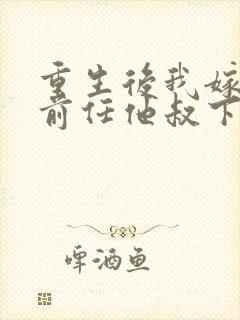 重生後我嫁
前任他叔下
啤酒鱼